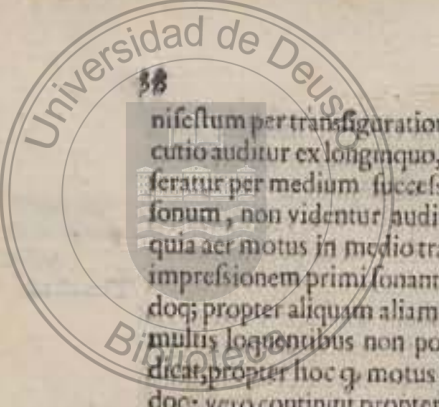 Universidad de Deusto
Biblioteca
38
nifestum per transfiguration
cutio auditur ex longinquo,
feratur per medium succes
sonum, non videntur audi
quia aer motus in medio tra
impressionem primi sonant
doq; propter aliquam aliam
multis loquentibus non po
dicat, propter hoc q. motus
doq; vero contingit propter